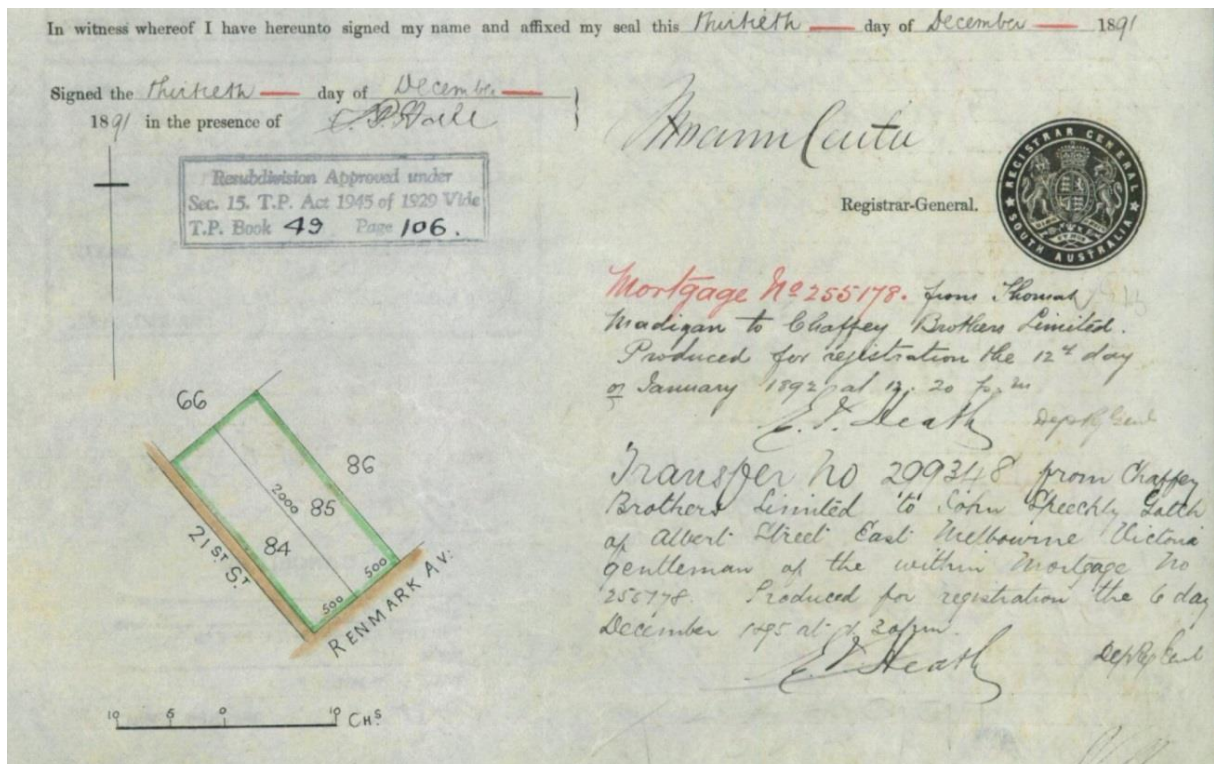 In witness whereof I have hereunto signed my name and affixed my seal this thirtieth day of December 1891
Signed the thirtieth day of December
1891 in the presence of
Resubdivision Approved under
Sec. 15. T.P. Act 1945 of 1929 Vide
T.P. Book 49 Page 106.
Registrar-General.
REGISTRAR GENERAL
SOUTH AUSTRALIA
Mortgage No 255178. from Thomas
Madigan to Chaffey Brothers Limited.
Produced for registration the 12th day
of January 1892 at 12.20 p.m
E. J. Heath Dep Reg Genl
Transfer No 299348 from Chaffey
Brothers Limited to John Speechly Gotch
of Albert Street East Melbourne Victoria
gentleman of the within Mortgage No
255178. Produced for registration the 6 day
December 1895 at
Heath Dep Reg Genl
66
86
2000
85
84
500
500
21ST ST
RENMARK AV:
10 5 0 10 CHS